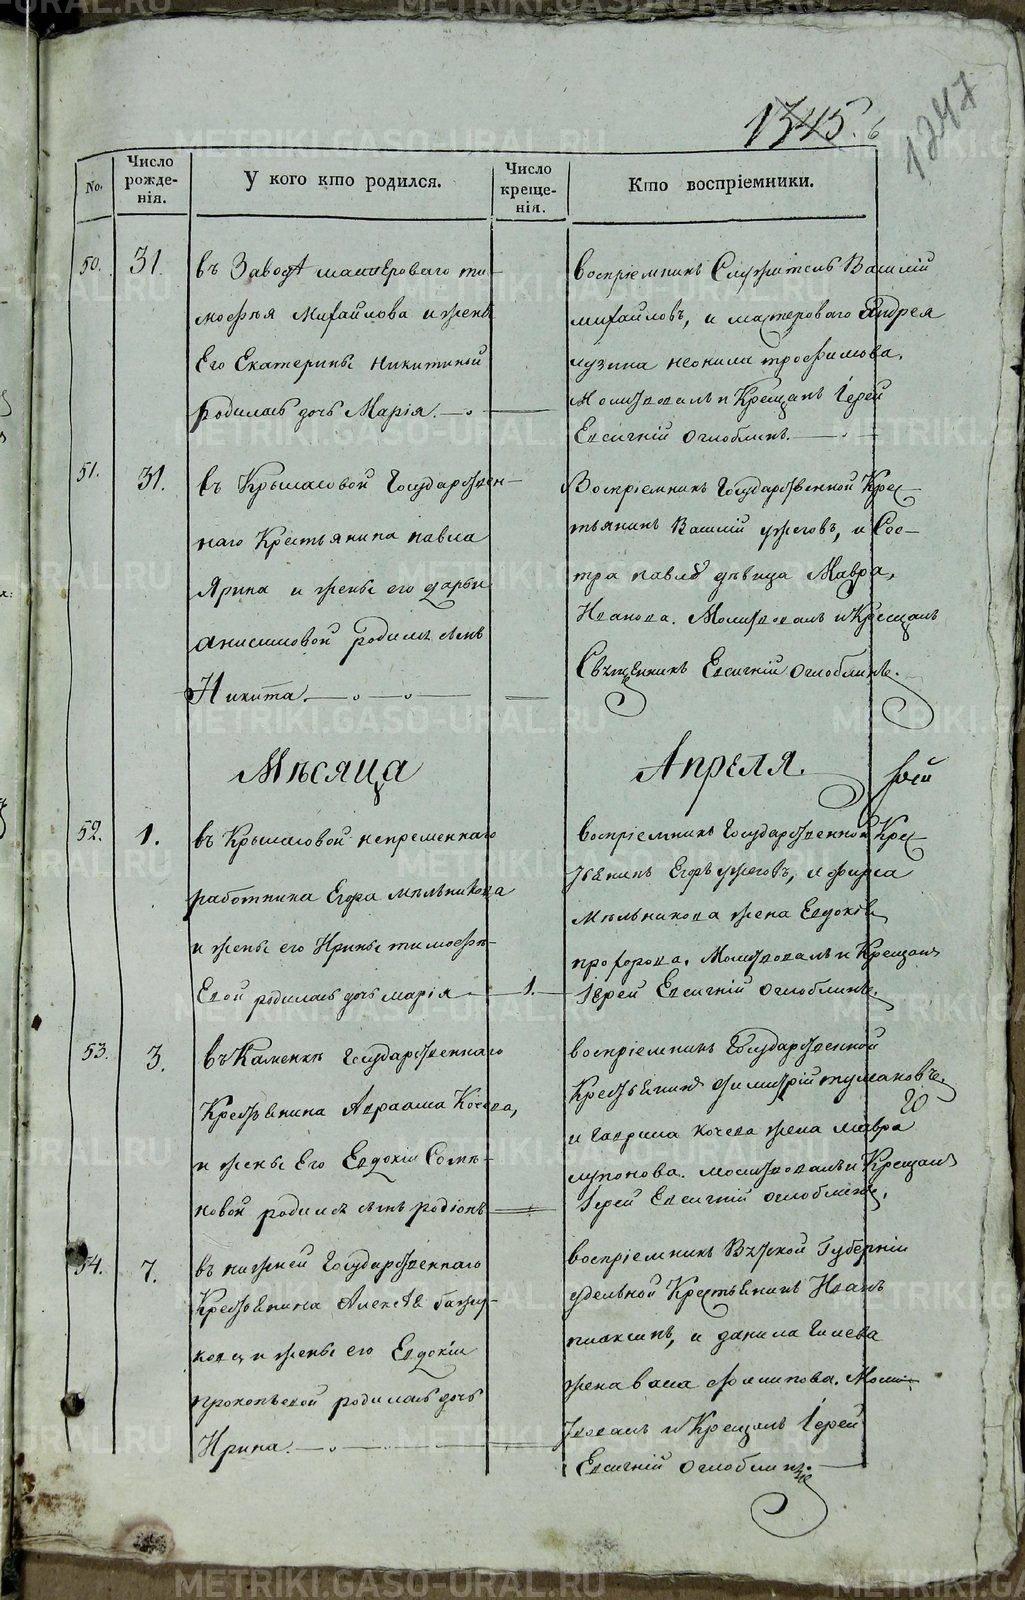 1345. б
1247
No.
Число рожде-нія.
У кого кто родился.
Число креще-нія.
Кто воспріемники.
50.
31.
въ Заводѣ мастероваго ти-
мофѣя Михайлова и жены
Его Екатерины Никитиной
родилась дочь Марія.
воспріемникъ Служитель Василій
михайловъ, и мастероваго Андрея
лузина неонила трофимова.
Молитвовалъ и Крещалъ Іерей
Евсигній Оглоблинъ.
51.
31.
въ Крыласовой Государствен-
наго Крестьянина павла
Ярина и жены его дарьи
анисимовой родился сынъ
Никита.
Воспріемникъ Государственной Крес-
тьянинъ Василій ужеговъ, и Сес-
тра павла дѣвица Мавра,
Иванова. Молитвовалъ и Крещалъ
Священникъ Евсигній Оглоблинъ.
Мѣсяца
Апреля.
52.
1.
въ Крыласовой непременнаго
работника Егора мѣльникова
и жены его Ирины тимофѣ-
Евой родилась дочь марія
1.
воспріемникъ Государственной Крес-
тьянинъ Егоръ ужеговъ, и фирса
Мѣльникова жена Евдокія
прохорова. Молитвовалъ и Крещалъ
Іерей Евсигній Оглоблинъ.
53.
3.
въ Каменкѣ Государственнаго
Крестьянина Авраама Кочева,
и жены Его Евдокіи
новой родился сынъ родіонъ
воспріемникъ Государственной
Крестьянинъ димитрій тумановъ.
и гаврила кочева жена мавра
Молитвовалъ и Крещалъ
Іерей Евсигній Оглоблинъ.
54.
7.
въ нижней Государственнаго
Крестьянина Алексѣя
и жены его Евдокіи
прокопьевой родилась дочь
Ирина.
воспріемникъ Вятской Губерніи
удельной Крестьянинъ Иванъ
и данила
жена васса филипова. Моли-
твовалъ и Крещалъ Іерей
Евсигній Оглоблинъ.
METRIKI.GASO-URAL.RU